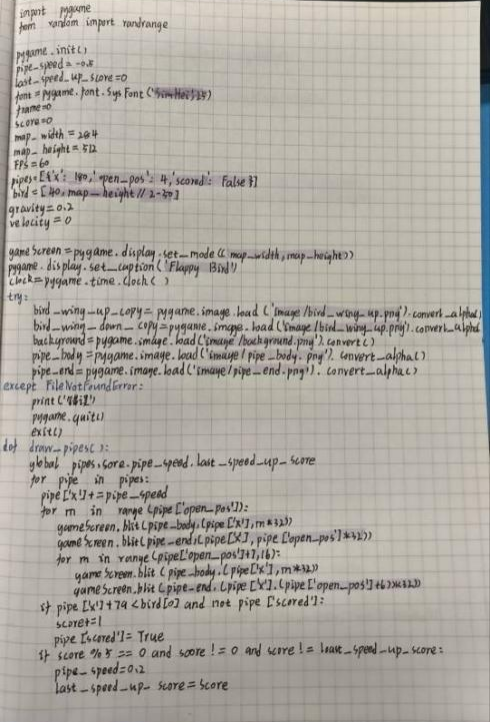 import pygame
from random import randrange
pygame.init()
pipe_speed = -0.5
last_speed_up_score=0
font = pygame.font.SysFont('SimHei', 25)
frame=0
score=0
map_width = 284
map_height = 512
FPS = 60
pipes=[{'x': 180,'open_pos': 4,'scored': False}]
bird = [40, map_height // 2-50]
gravity = 0.2
velocity = 0
gameScreen = pygame.display.set_mode((map_width, map_height))
pygame.display.set_caption('Flappy Bird')
clock=pygame.time.clock()
try:
bird_wing_up_copy = pygame.image.load('image/bird_wing_up.png').convert_alpha()
bird_wing_down_copy=pygame.image.load('image/bird_wing_up.png').convert_alpha
background=pygame.image.load('image/background.png').convert()
pipe_body=pygame.image.load('image/pipe_body.png').convert_alpha()
pipe_end=pygame.image.load('image/pipe_end.png').convert_alpha()
except FileNotFoundError:
print('错过')
pygame.quit()
exit()
def draw_pipes():
global pipes.sore.pipe_speed.last_speed_up_score
for pipe in pipes:
pipe['x']+=pipe_speed
for m in range(pipe['open_pos']):
gameScreen.blit(pipe_body,(pipe['x'],m*32))
gameScreen.blit(pipe_end,(pipe['x'],pipe['open_pos']*32))
for m in range(pipe['open_pos']+7,16):
gameScreen.blit(pipe_body,(pipe['x'],m*32))
gameScreen.blit(pipe_end,(pipe['x'],(pipe['open_pos']+6)*32))
if pipe['x']+79<bird[0] and not pipe['scored']:
score+=1
pipe['scored']= True
if score %5 == 0 and score != 0 and score != last_speed_up_score:
pipe_speed=0.2
last_speed_up_score=score